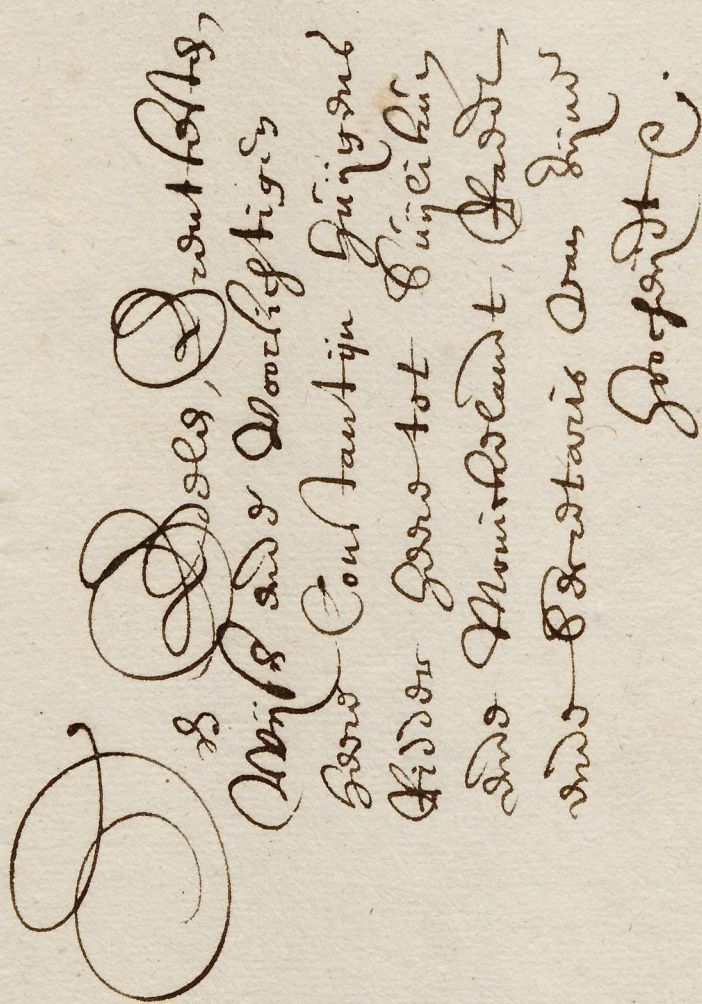 De Eedele, Erentfeste,
Wijse ende Voorsichtigen
Heere Constantijn Huijgens
Ridder Heere tot Suijlichum
ende Monickelant, Raedt
ende Secretaris van Sijne
Hoocheijdt C.